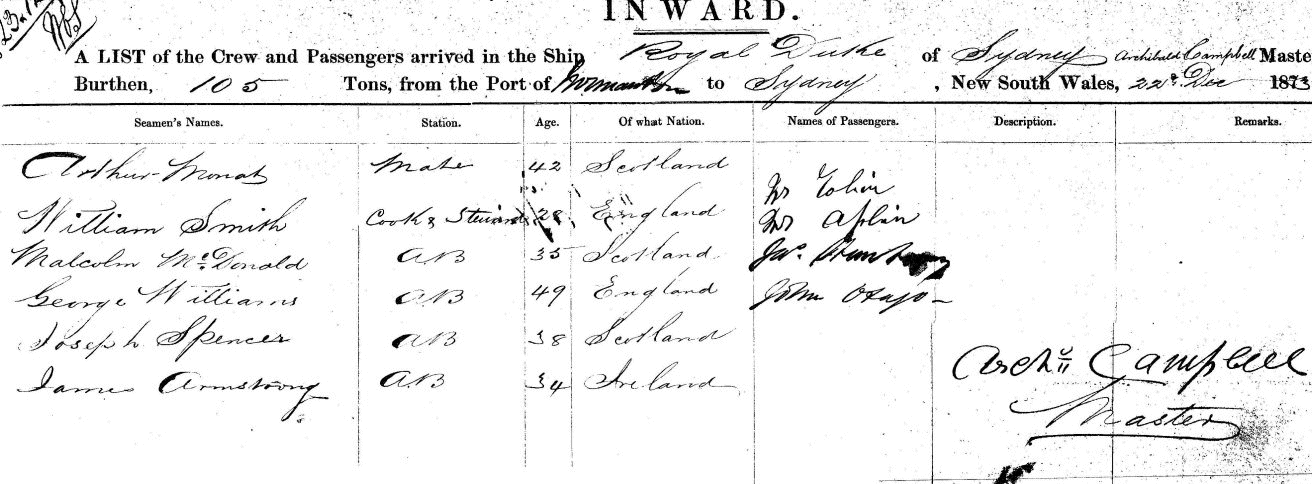 INWARD.
A LIST of the Crew and Passengers arrived in the Ship Royal Duke of Sydney Archibald Campbell Maste
Burthen, 105 Tons, from the Port of Normanton to Sydney, New South Wales, 22d Dec 1873
Seamen's Names. Station. Age. Of what Nation. Names of Passengers. Description. Remarks.
Arthur Monat Mate 42 Scotland
Mr Tobin
William Smith Cook & Steward 28 England Mr Aplin
Malcolm McDonald AB 35 Scotland Jas.
George Williams AB 49 England John
Joseph Spencer AB 38 Scotland
James Armstrong AB 34 Ireland
Archd Campbell
Master